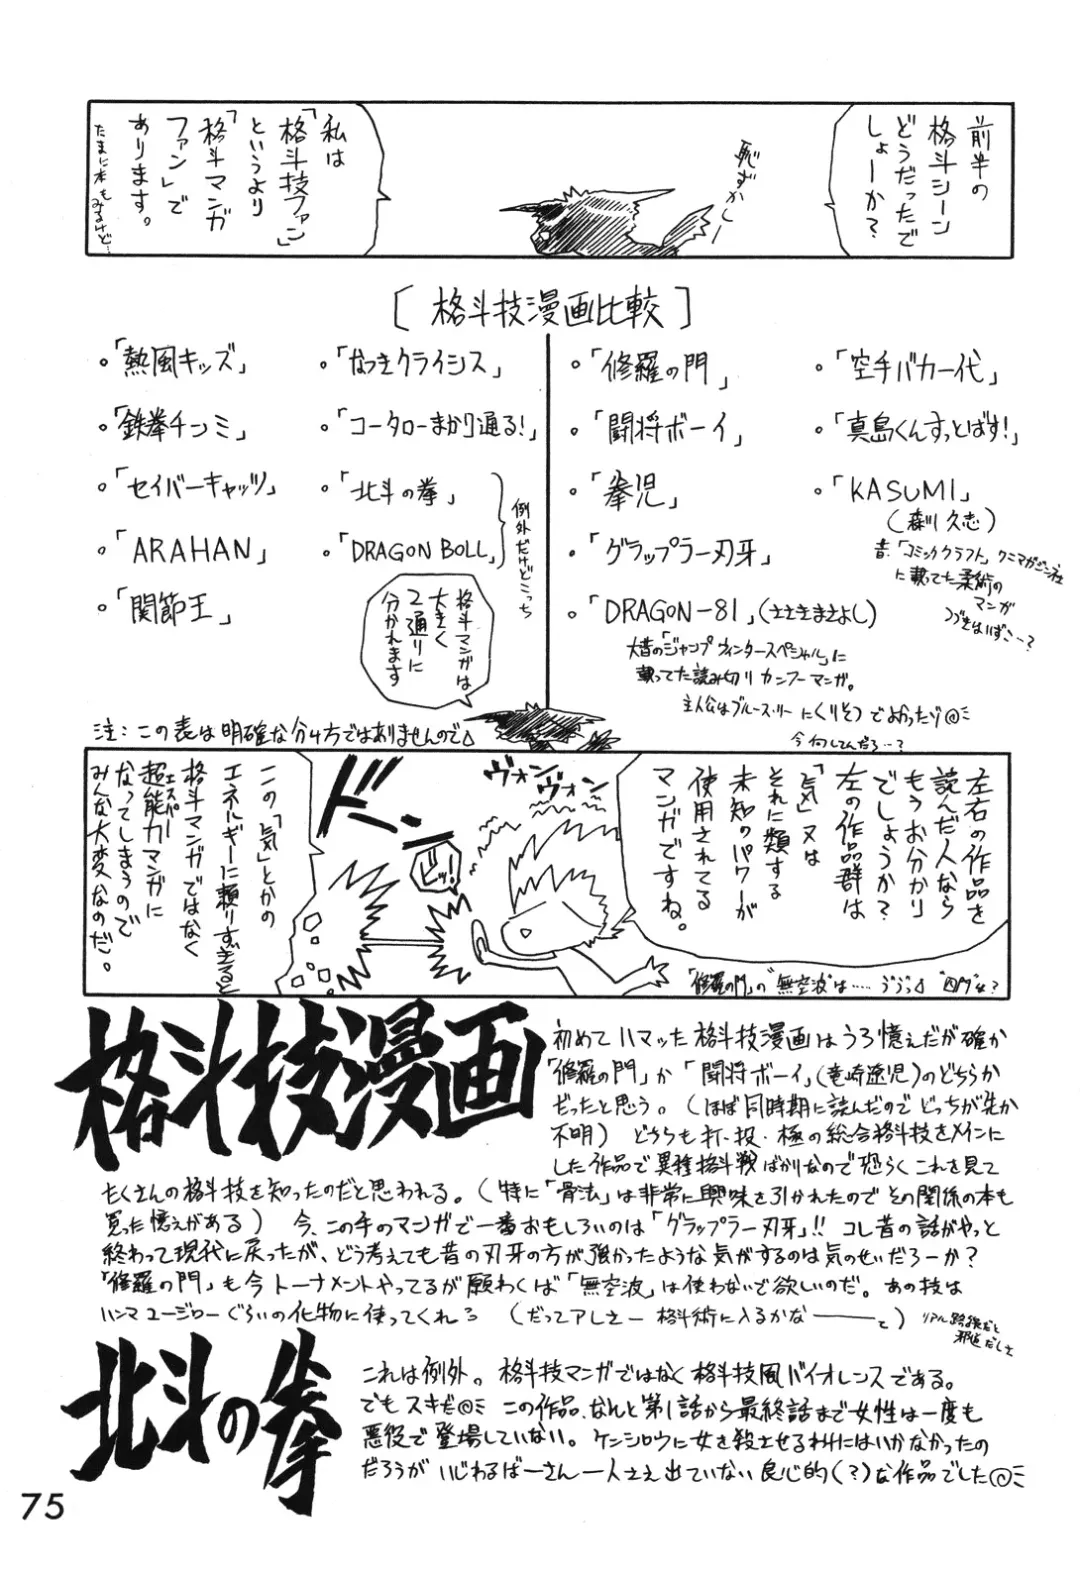 前半の
格斗シーン
どうだったで
しょーか?
恥ずかしー
私は
「格斗技ファン」
というより
「格斗マンガ
ファン」で
あります。
たまに本もみるけど…
[格斗技漫画比較]
。「熱風キッズ」
。「鉄拳チンミ」
。「セイバーキャッツ」
。「ARAHAN」
。「関節王」
。「なつきクライシス」
。「コータローまかり通る!」
。「北斗の拳」
。「DRAGON BOLL」
例外だけどこっち
格斗マンガは
大きく
2通りに
分かれます
。「修羅の門」
。「闘将ボーイ」
。「拳児」
。「グラップラー刃牙」
。「DRAGON-81」(ささきまさよし)
大昔の「ジャンプ ウィンタースペシャル」に
載ってた読み切りカンフーマンガ。
主人公はブルース・リーにくりそつでよかったゾ@ミ
今何してんだろ…?
。「空手バカ一代」
。「真島くんすっとばす!」
。「KASUMI」
(森川久志)
昔、「コミッククラフト」ワニマガジン社
に載ってた柔術の
マンガ
つづきはいずこー?
注:この表は明確な分け方ではありませんので
左右の作品を
読んだ人なら
もうお分かり
でしょうか?
左の作品群は
「気」又は
それに類する
未知のパワーが
使用されてる
マンガですね。
「修羅の門」の"無空波"は……
ヴォンヴォン
ドン
ビッ!
この「気」とかの
エネルギーに頼りすぎると
格斗マンガではなく
超能力マンガに
エスパー
なってしまうので
みんな大変なのだ。
格斗技漫画
初めてハマッた格斗技漫画はうろ憶えだが確か
「修羅の門」か「闘将ボーイ」(竜崎遼児)のどちらか
だったと思う。(ほぼ同時期に読んだのでどっちが先か
不明) どちらも打・投・極の総合格斗技をメインに
した作品で異種格斗戦ばかりなので恐らくこれを見て
たくさんの格斗技を知ったのだと思われる。(特に「骨法」は非常に興味を引かれたのでその関係の本も
買った憶えがある) 今、この手のマンガで一番おもしろいのは「グラップラー刃牙」!! コレ昔の話がやっと
終わって現代に戻ったが、どう考えても昔の刃牙の方が強かったような気がするのは気のせいだろーか?
「修羅の門」も今トーナメントやってるが願わくば「無空波」は使わないで欲しいのだ。あの技は
ハンマユージローぐらいの化物に使ってくれろ (だってアレさー格斗術に入るかなーーーと) リアル路線だと
邪道だしさ
北斗の拳
これは例外。格斗技マンガではなく格斗技風バイオレンスである。
でもスキだ@ミ この作品、なんと第1話から最終話まで女性は一度も
悪役で登場していない。ケンシロウに女を殺させるわけにはいかなかったの
だろうがいじわるばーさん一人さえ出ていない良心的(?)な作品でした@ミ
75